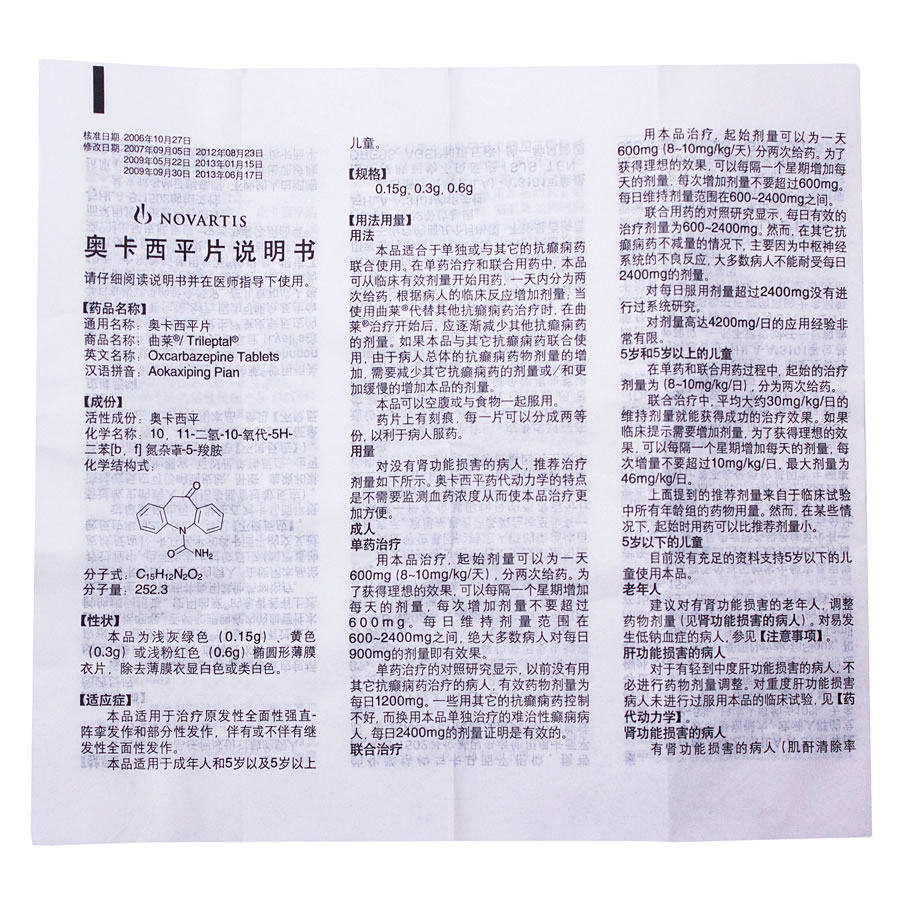 核准日期:2006年10月27日
修改日期:2007年09月05日 2012年08月23日
2009年05月22日 2013年01月15日
2009年09月30日 2013年06月17日
NOVARTIS
奥卡西平片说明书
请仔细阅读说明书并在医师指导下使用。
【药品名称】
通用名称：奥卡西平片
商品名称：曲莱®/ Trileptal®
英文名称：Oxcarbazepine Tablets
汉语拼音：Aokaxiping Pian
【成份】
活性成份：奥卡西平
化学名称：10，11-二氢-10-氧代-5H-
二苯[b，f]氮杂䓬-5-羧胺
化学结构式：
O
N
O
NH₂
分子式：C₁₅H₁₂N₂O₂
分子量：252.3
【性状】
本品为浅灰绿色（0.15g）、黄色
（0.3g）或浅粉红色（0.6g）椭圆形薄膜
衣片，除去薄膜衣显白色或类白色。
【适应症】
本品适用于治疗原发性全面性强直-
阵挛发作和部分性发作，伴有或不伴有继
发性全面性发作。
本品适用于成年人和5岁以及5岁以上
儿童。
【规格】
0.15g, 0.3g, 0.6g
【用法用量】
用法
本品适合于单独或与其它的抗癫痫药
联合使用。在单药治疗和联合用药中，本品
可从临床有效剂量开始用药，一天内分为两
次给药，根据病人的临床反应增加剂量，当
使用曲莱®代替其他抗癫痫药治疗时，在曲
莱®治疗开始后，应逐渐减少其他抗癫痫药
的剂量。如果本品与其它抗癫痫药联合使
用，由于病人总体的抗癫痫药物剂量的增
加，需要减少其它抗癫痫药的剂量或/和更
加缓慢的增加本品的剂量。
本品可以空腹或与食物一起服用。
药片上有刻痕，每一片可以分成两等
份，以利于病人服药。
用量
对没有肾功能损害的病人，推荐治疗
剂量如下所示。奥卡西平药代动力学的特点
是不需要监测血药浓度从而使本品治疗更
加方便。
成人
单药治疗
用本品治疗，起始剂量可以为一天
600mg (8~10mg/kg/天)，分两次给药。为
了获得理想的效果，可以每隔一个星期增加
每天的剂量，每次增加剂量不要超过
600mg。每日维持剂量范围在
600~2400mg之间，绝大多数病人对每日
900mg的剂量即有效果。
单药治疗的对照研究显示，以前没有用
其它抗癫痫药治疗的病人，有效药物剂量为
每日1200mg。一些用其它的抗癫痫药控制
不好，而换用本品单独治疗的难治性癫痫病
人，每日2400mg的剂量证明是有效的。
联合治疗
用本品治疗，起始剂量可以为一天
600mg (8~10mg/kg/天) 分两次给药。为了
获得理想的效果，可以每隔一个星期增加每
天的剂量，每次增加剂量不要超过600mg。
每日维持剂量范围在600~2400mg之间。
联合用药的对照研究显示，每日有效的
治疗剂量为600~2400mg。然而，在其它抗
癫痫药不减量的情况下，主要因为中枢神经
系统的不良反应，大多数病人不能耐受每日
2400mg的剂量。
对每日服用剂量超过2400mg没有进
行过系统研究。
对剂量高达4200mg/日的应用经验非
常有限。
5岁和5岁以上的儿童
在单药和联合用药过程中，起始的治疗
剂量为 (8~10mg/kg/日)，分为两次给药。
联合治疗中，平均大约30mg/kg/日的
维持剂量就能获得成功的治疗效果。如果
临床提示需要增加剂量，为了获得理想的效
果，可以每隔一个星期增加每天的剂量，每
次增量不要超过10mg/kg/日，最大剂量为
46mg/kg/日。
上面提到的推荐剂量来自于临床试验
中所有年龄组的药物用量。然而，在某些情
况下，起始时用药可以比推荐剂量小。
5岁以下的儿童
目前没有充足的资料支持5岁以下的儿
童使用本品。
老年人
建议对有肾功能损害的老年人，调整
药物剂量（见肾功能损害的病人）。对易发
生低钠血症的病人，参见【注意事项】。
肝功能损害的病人
对于有轻到中度肝功能损害的病人，不
必进行药物剂量调整。对重度肝功能损害
病人未进行过服用本品的临床试验，见【药
代动力学】。
肾功能损害的病人
有肾功能损害的病人（肌酐清除率